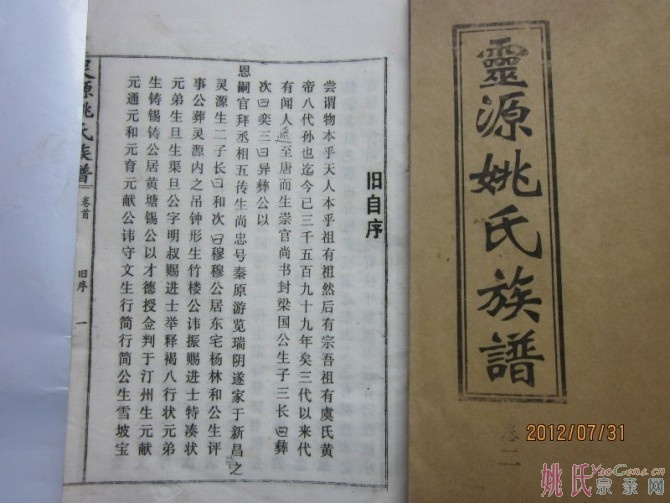 靈源姚氏族譜
卷二
旧自序
尝谓物本乎天人本乎祖有祖然后有宗吾祖有虞氏黄
帝八代孙也迄今已三千五百九十九年矣三代以来代
有闻人遞至唐而生崇官尚书封梁国公生子三长曰彝
次曰奕三曰异彝公以
恩嗣官拜丞相五传生尚忠号秦原游览瑞阴遂家于新昌之
灵源生二子长曰和次曰穆穆公居东宅杨林和公生评
事公葬灵源内之吊钟形生竹楼公讳振赐进士特凑状
元弟生旦生渠旦公字明叔赐进士举释褐八行状元弟
生铸锡铸公居黄塘锡公以才德授佥判于汀州生元献
元通元和元育元献公讳守文生行简行简公生雪坡宝
灵源姚氏族普
卷首
旧序
一
2012/07/31
YaoGens.cn
姚氏宗亲网